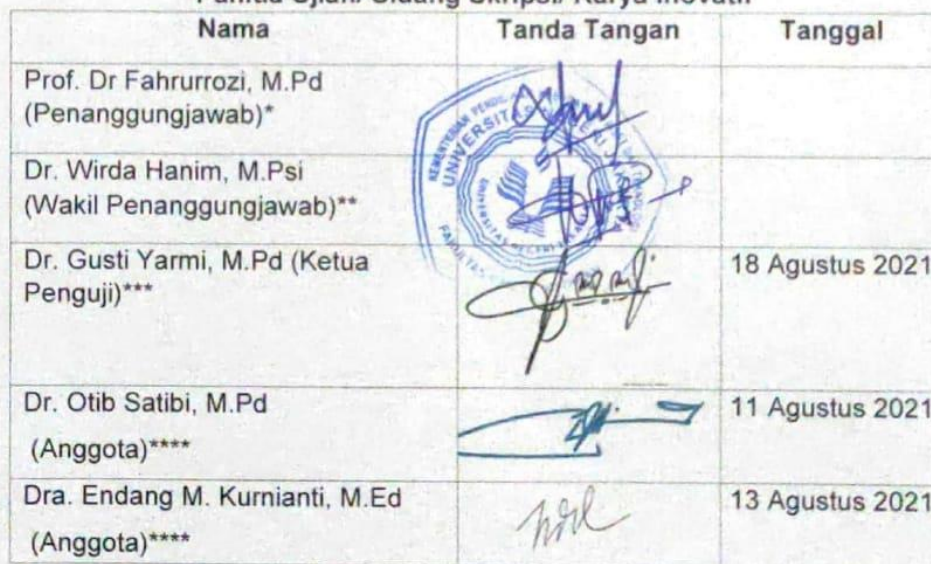 Panitia Ujian/ Sidang Skripsi/ Karya Inovatif
Nama Tanda Tangan Tanggal
Prof. Dr Fahrurrozi, M.Pd
(Penanggungjawab)*
Dr. Wirda Hanim, M.Psi
(Wakil Penanggungjawab)**
Dr. Gusti Yarmi, M.Pd (Ketua
Penguji)***
18 Agustus 2021
Dr. Otib Satibi, M.Pd
(Anggota)****
11 Agustus 2021
Dra. Endang M. Kurnianti, M.Ed
(Anggota)****
13 Agustus 2021